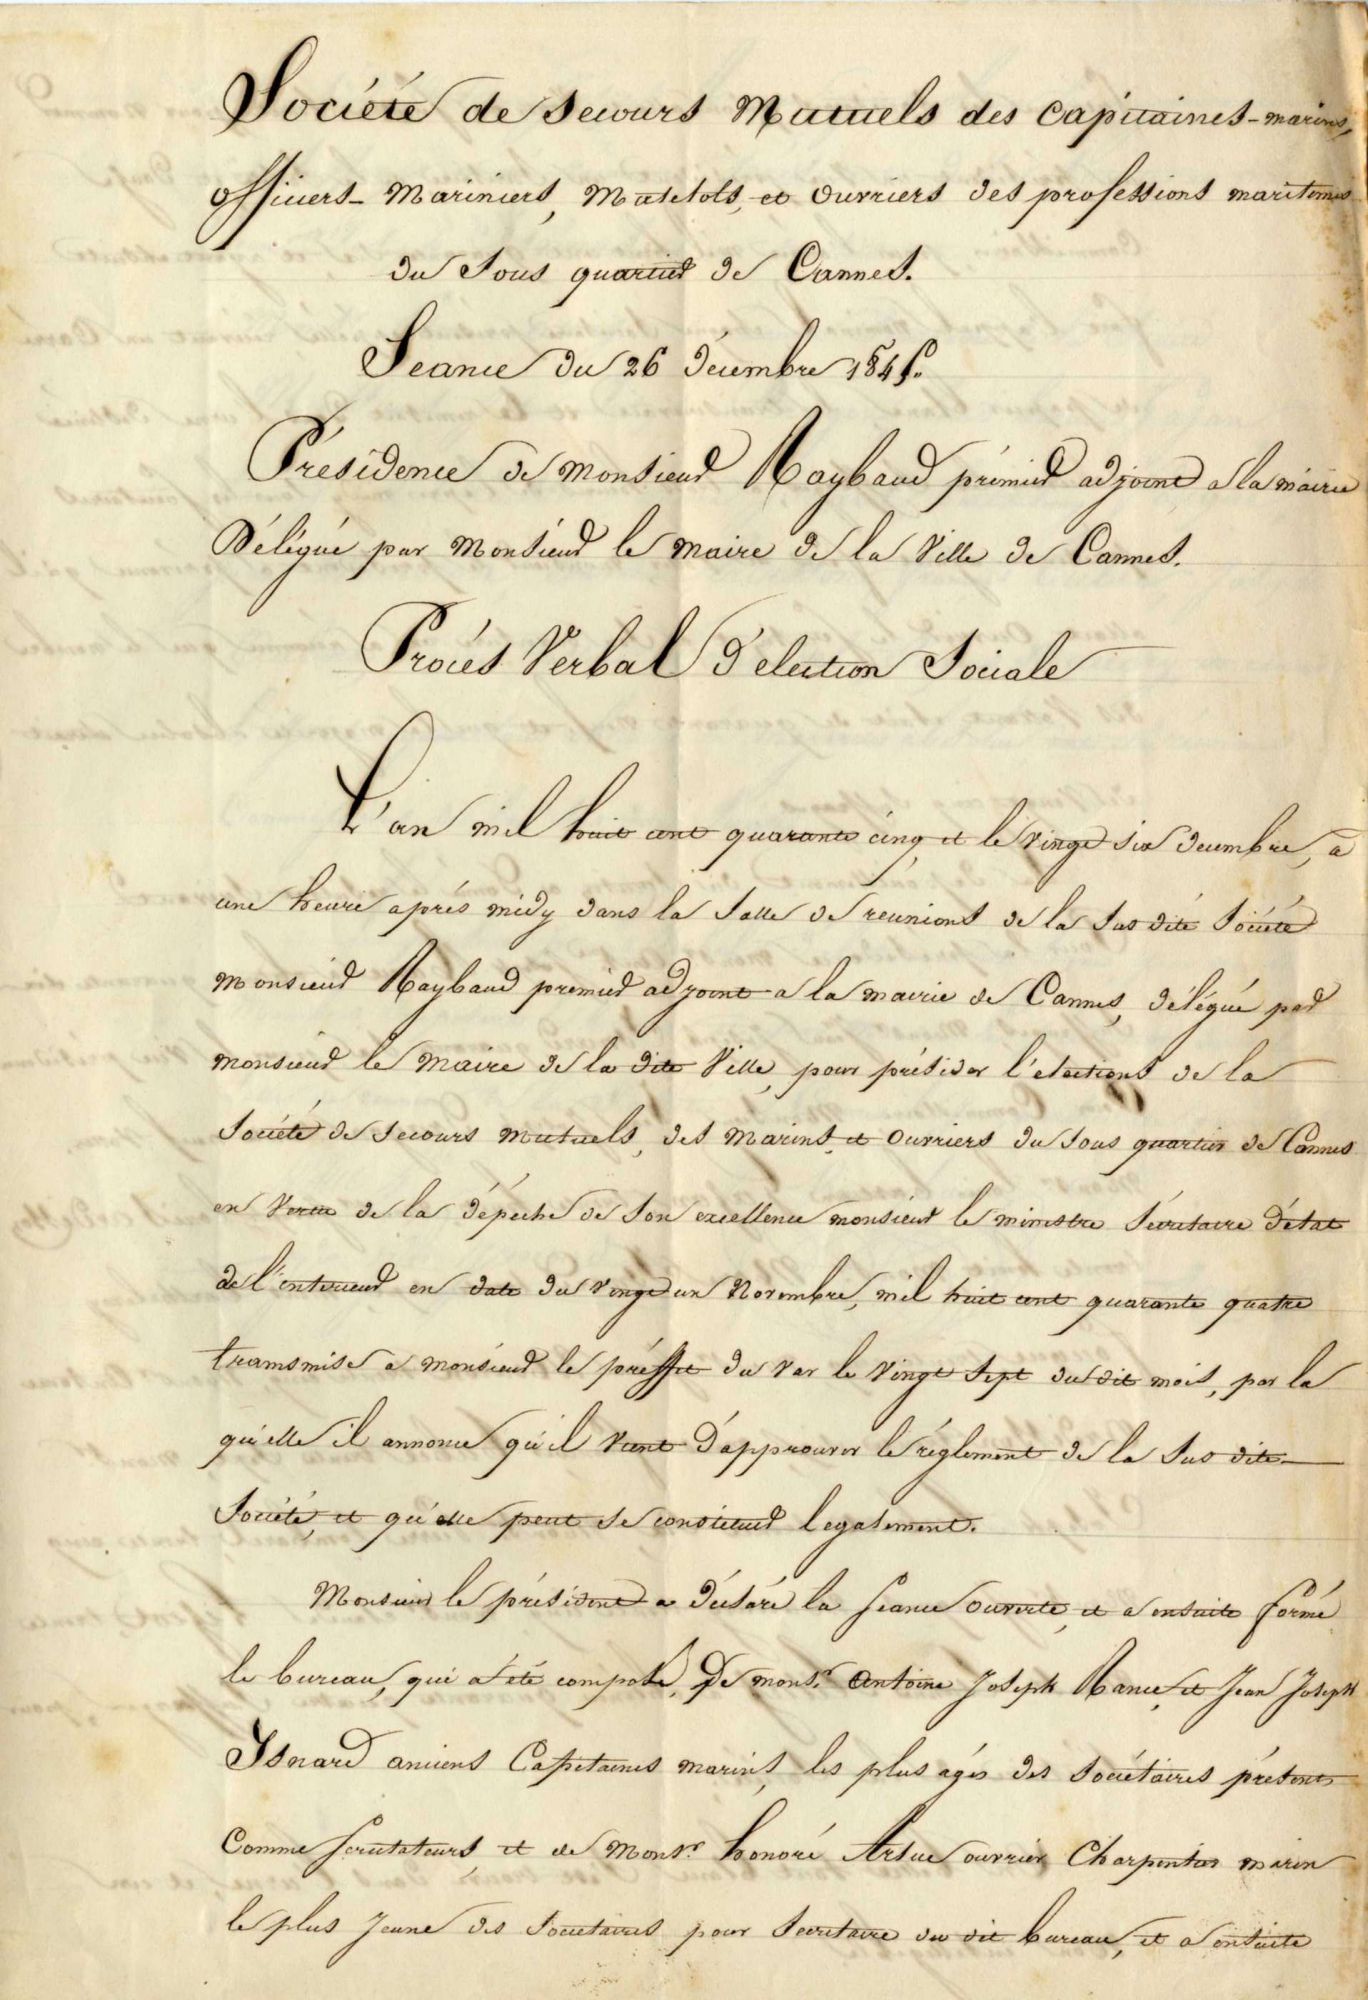 Société de Secours Mutuels des Capitaines-marins,
officiers-Mariniers, Matelots, et Ouvriers des professions maritimes
du Sous quartier de Cannes.
Séance du 26 décembre 1845.
Présidence de Monsieur Raybaud prémier adjoint a la mairie
Délégué par Monsieur le Maire de la Ville de Cannes.
Procés Verbal d'election Sociale
L'an mil huit cent quarante cinq, et le vingt six decembre, a
une heure aprés midy dans la Salle de reunions de la Sus dite Société
Monsieur Raybaud premier adjoint a la mairie de Cannes, délégué par
monsieur le Maire de la dite Ville, pour présider l'elections de la
Société de Secours Mutuels, des Marins, et Ouvriers du Sous quartier de Cannes
en Vertu de la dépeche de Son excellence monsieur le ministre Sécretaire d'état
de l'interieur en date du vingt un Novembre, mil huit cent quarante quatre
transmise a monsieur le préffet du Var le vingt Sept du dit mois, par la
qu'elle il annonce qu'il Vient d'approuver le réglement de la Sus dite
Société, et qu'elle peut se constituer legalement.
Monsieur le président a déclaré la Seance ouverte, et a ensuite formé
le bureau, qui a été composé, De monsr. Antoine Joseph Rance, et Jean Joseph
Isnard anciens Capitaines marins, les plus agés des Sociétaires présents
Comme Scrutateurs, et de Monsr. honoré Artue ouvrier Charpentier marin
le plus Jeune des Societaires pour Secretaire du dit bureau, et a ensuite